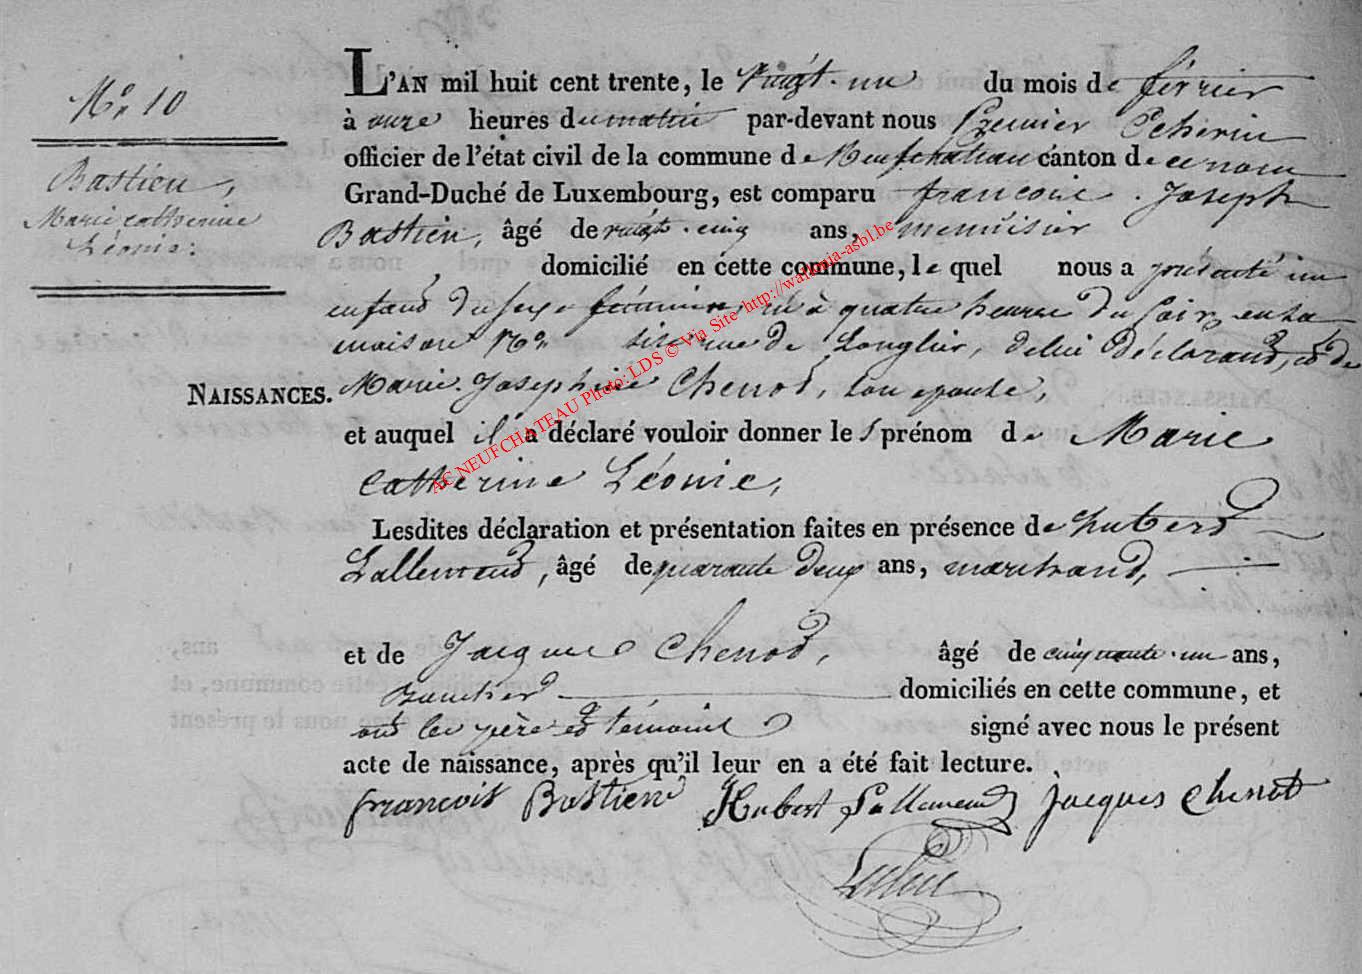 N.° 10
Bastien,
Marie catherine
Léonie.
NAISSANCES.
L'AN mil huit cent trente, le Vingt-un du mois de février
à onze heures du matin par-devant nous Premier Echevin
officier de l'état civil de la commune de Neufchateau canton de ce nom
Grand-Duché de Luxembourg, est comparu francois Joseph
Bastien, âgé de vingt-cinq ans, menuisier
domicilié en cette commune, le quel nous a présenté un
enfant du sexe féminin, né à quatre heures du soir, en sa
maison N.° sise rue de Longlier, de lui déclarant, et de
Marie Josephine Chenot, son epouse,
et auquel il a déclaré vouloir donner les prénom de Marie
Catherine Léonie,
Lesdites déclaration et présentation faites en présence de hubert
Lallemand, âgé de quarante deux ans, marchand,
et de Jacques Chenot, âgé de cinquante-un ans,
rentier domiciliés en cette commune, et
ont les père et témoins signé avec nous le présent
acte de naissance, après qu'il leur en a été fait lecture.
francois Bastien Hubert Lallemand Jacques Chenot
AC NEUFCHATEAU Photo: LDS © Via Site http://wallonia-asbl.be